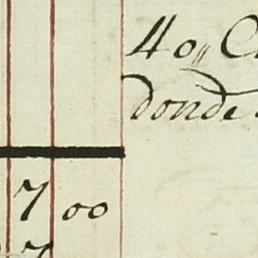 40,, C
donde
7 00
7